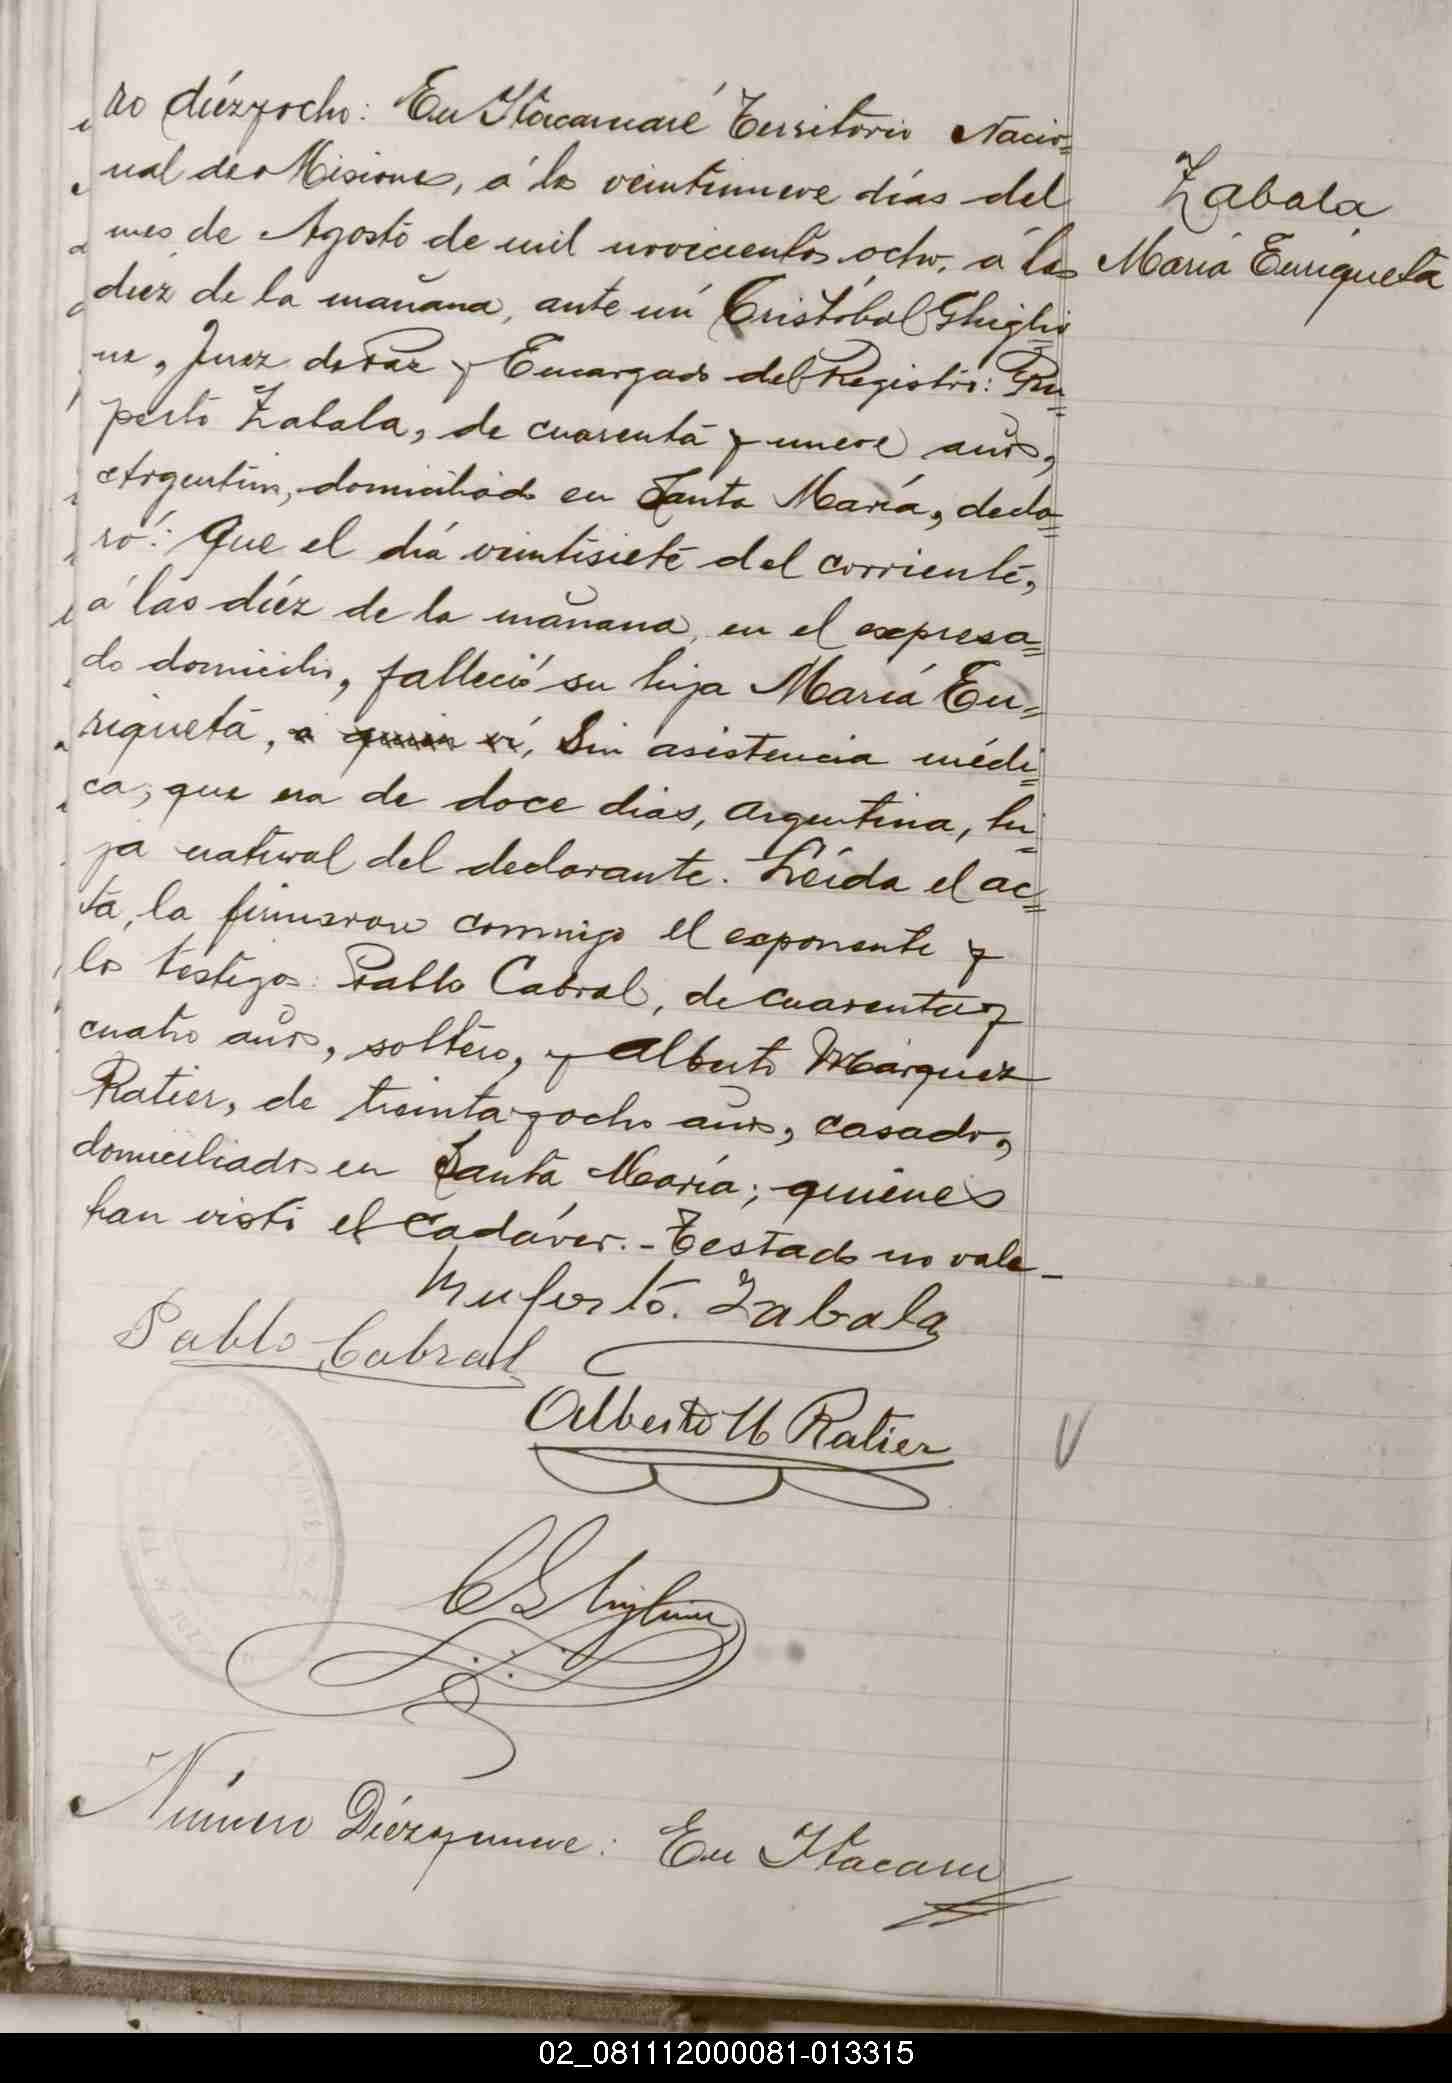 ro diézyocho: En Itacaruaré Territorio Nacio=
nal de Misiones, á los veintinueve días del
mes de Agosto de mil novecientos ocho, á las
diéz de la mañana, ante mí Cristóbal Ghiglio
ne, Juez de Paz y Encargado del Registro: Ru=
perto Zabala, de cuarenta y nueve años,
Argentino, domiciliado en Santa María, decla=
ró: Que el día veintisiete del corriente,
á las diéz de la mañana, en el expresa=
do domicilio, falleció su hija María En=
riqueta, a quien ví, Sin asistencia médi=
ca, que era de doce dias, argentina, hi=
ja natural del declarante. Leída el ac=
ta, la firmaron conmigo el exponente y
los testigos: Pablo Cabral, de cuarenta y
cuatro años, soltero, y Alberto Márquez
Ratier, de treinta y ocho años, casado,
domiciliados en Santa María; quiénes
han visto el cadáver.- Testado no vale-
Zabala
María Enriqueta
Ruperto. Zabala
Pablo Cabral
Alberto M Ratier
C Ghiglione
Número Diézynueve: En Itacaru
02_081112000081-013315